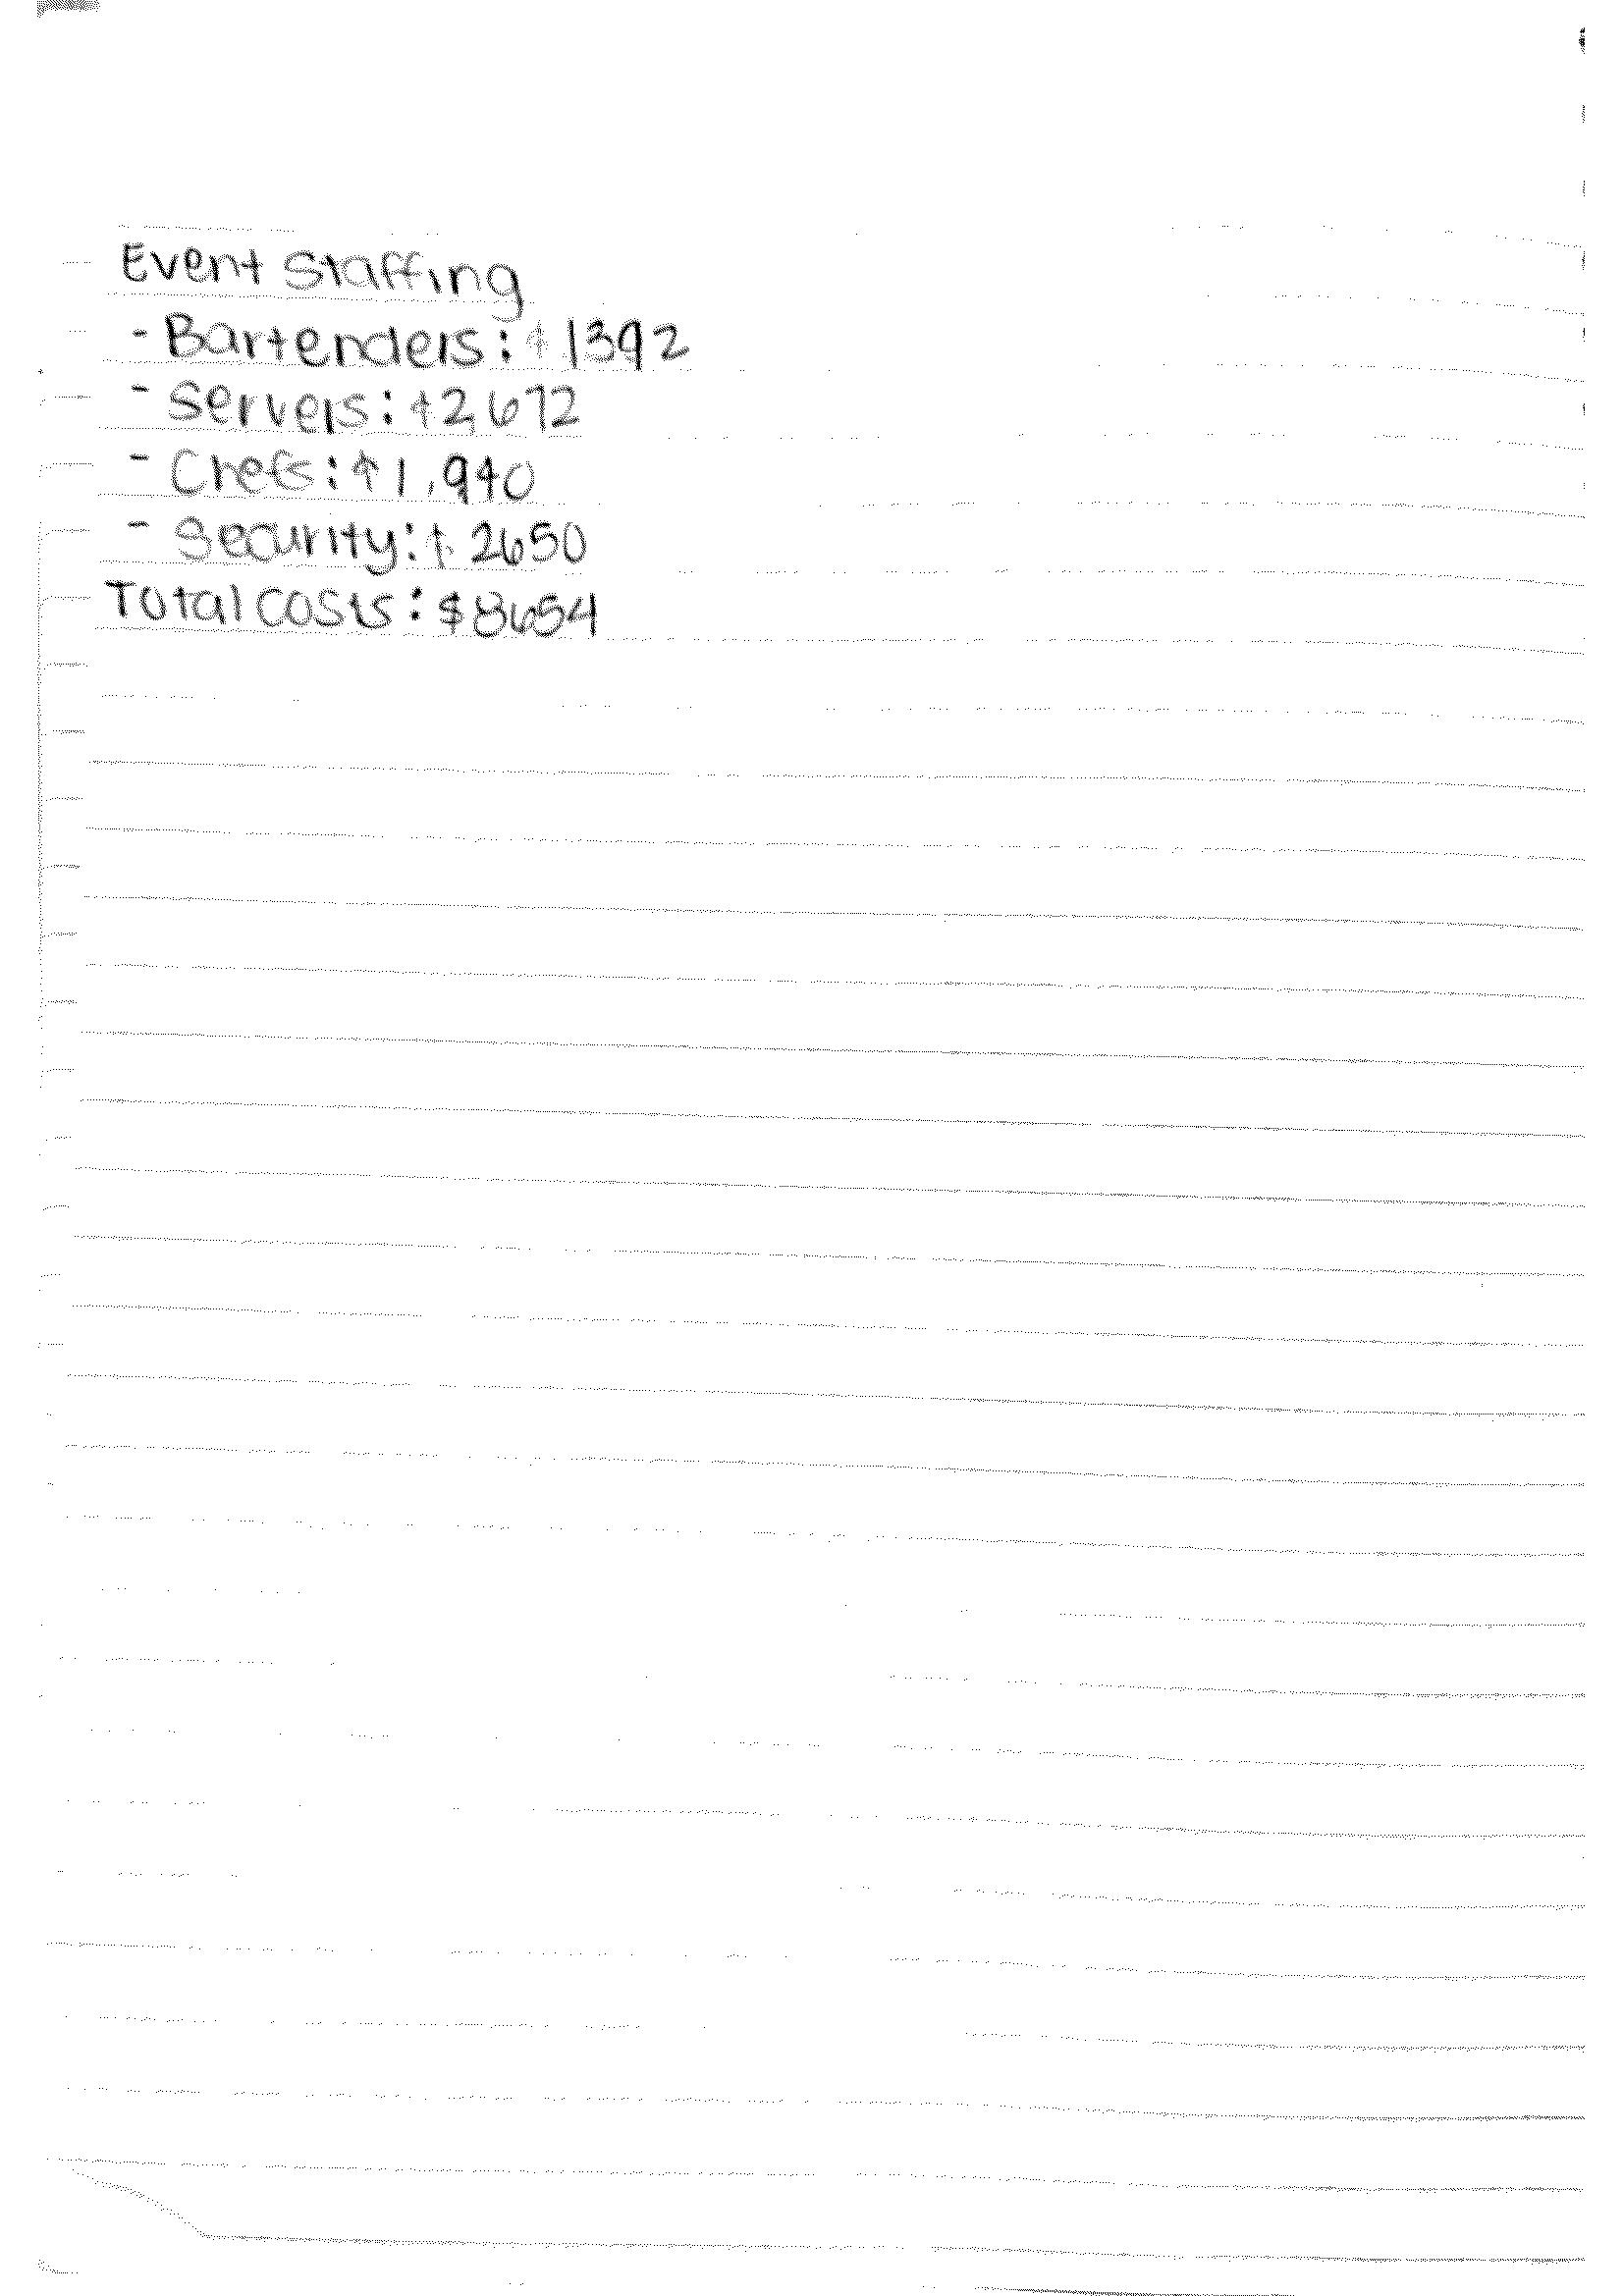 Event Staffing
- Bartenders: $1392
- Servers: $2,672
- Chefs: $1,940
- Security: $2650
Total costs: $8654